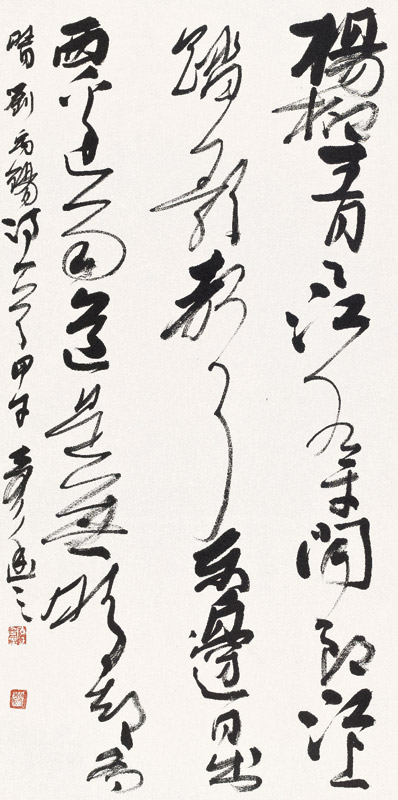 楊柳青青江水平聞郎江上
踏歌聲東邊日出
西邊雨道是無晴却有
晴劉禹錫詩一首甲午